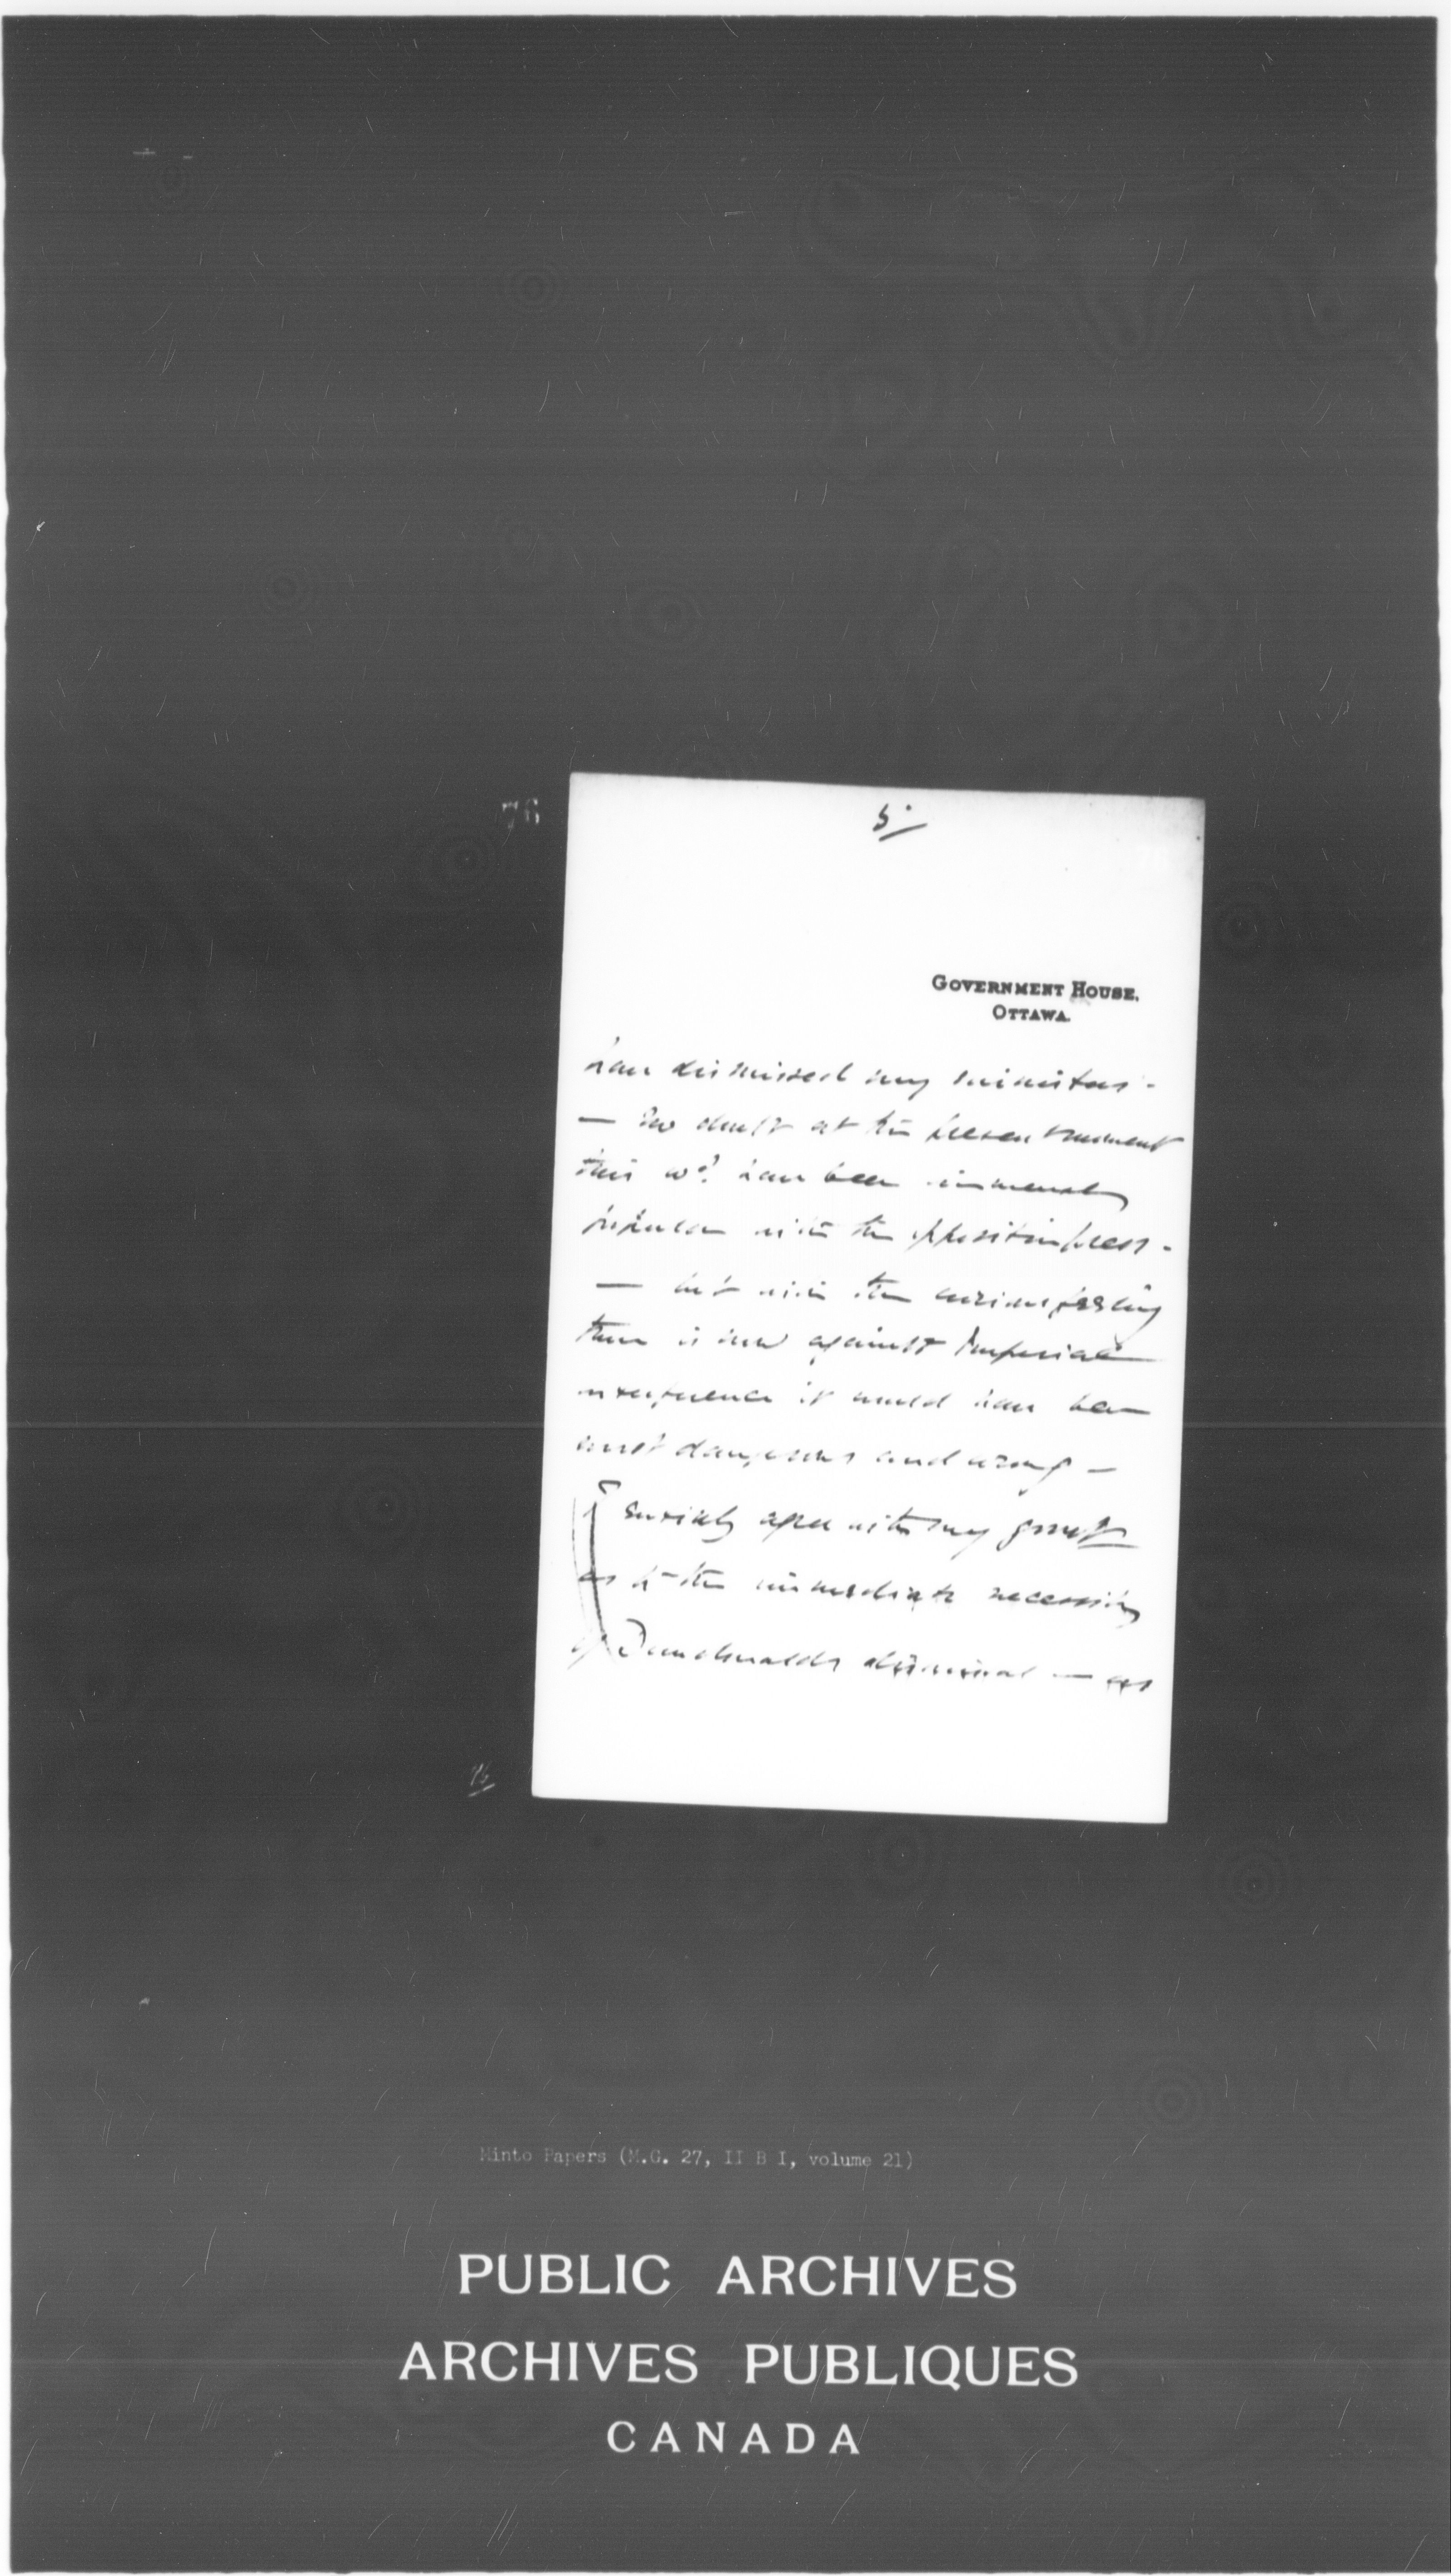 76
5.
GOVERNMENT HOUSE,
OTTAWA.
have dismissed my ministers -
— no doubt at the present moment
this wd. have been immensely
popular with the opposition press -
— but with the curious feeling
there is now against Imperial
interference it would have been
most dangerous and wrong —
I entirely agree with my govmt
as to the immediate necessity
of Dundonalds dismissal — as
76
Minto Papers (M.G. 27, II B I, volume 21)
PUBLIC ARCHIVES
ARCHIVES PUBLIQUES
CANADA